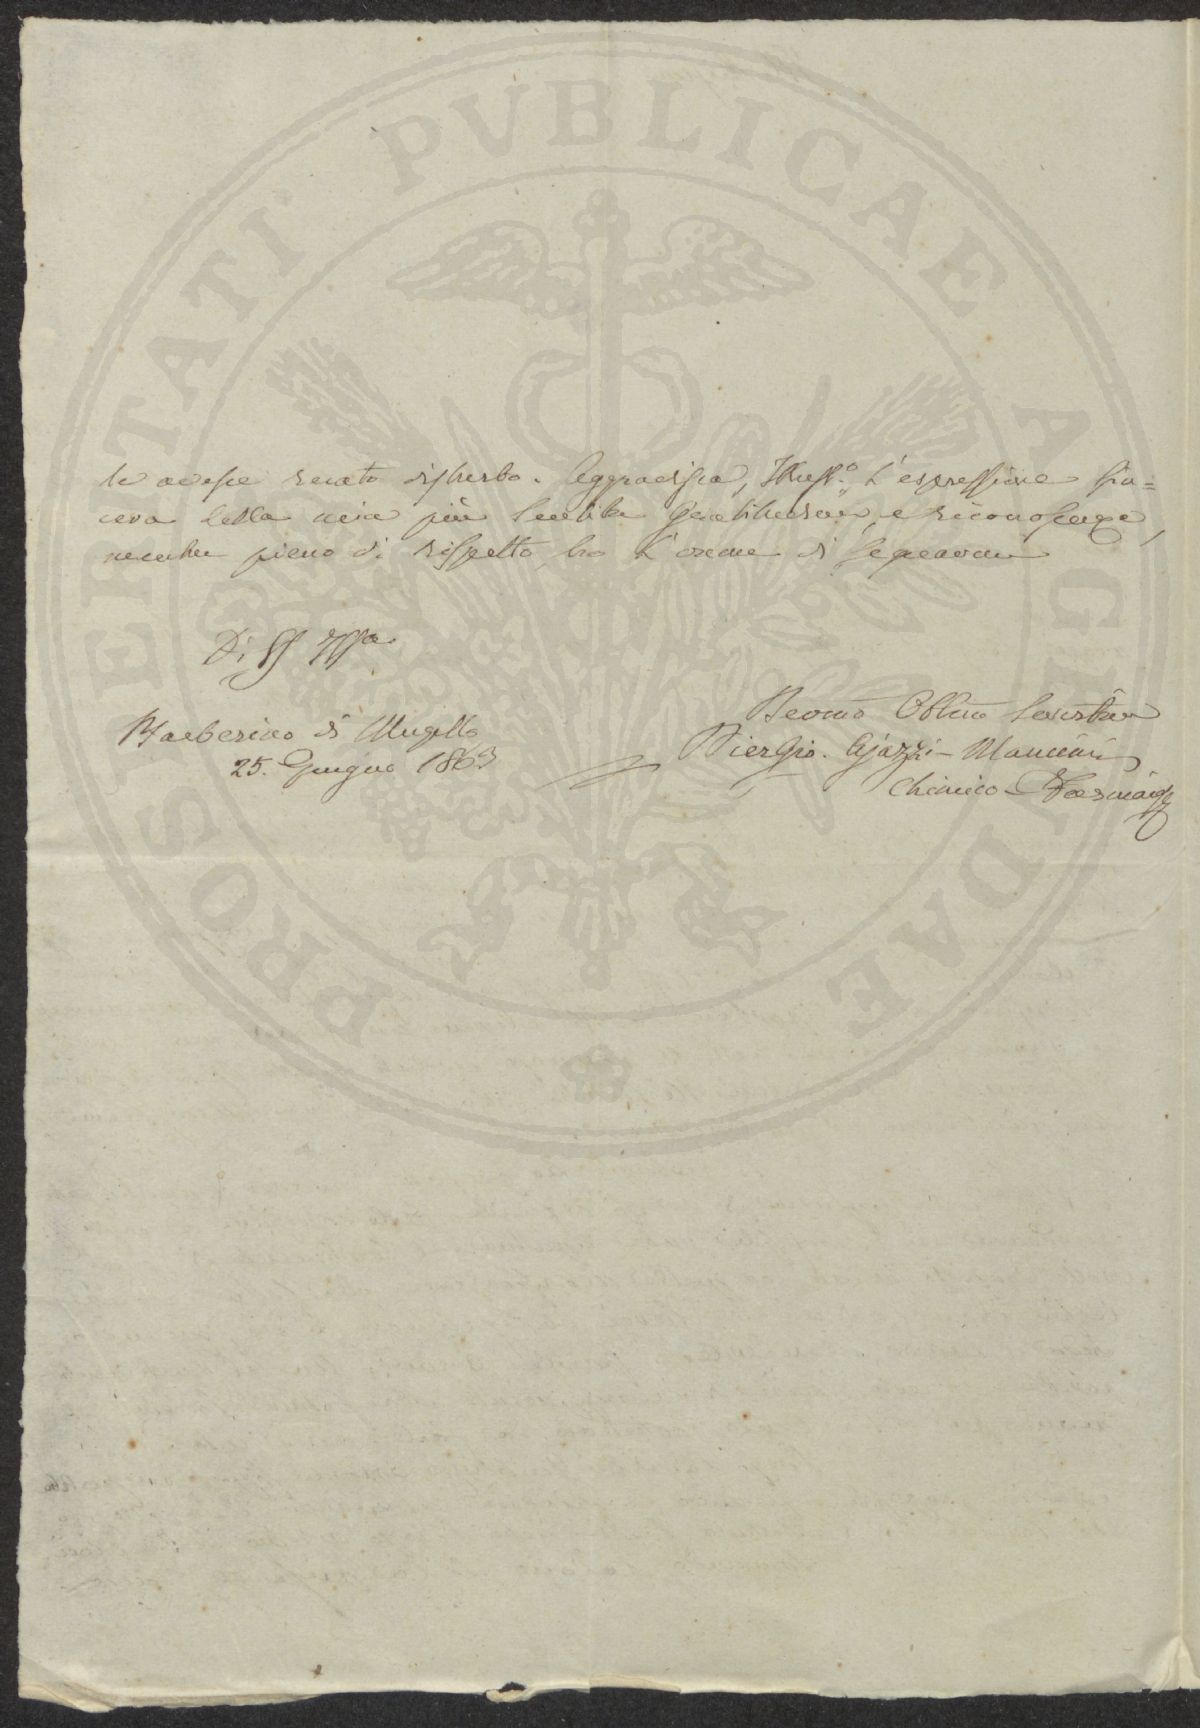 PROSPERITATI PVBLICAE AVGENDAE
le avesse recato disturbo. Aggradisca, Illuss.º l'espressione sin=
cera della mia più sentita gratitudine, e riconoscenza,
mentre pieno di rispetto, ho l'onore di segnarmi
Di
Barberino di Mugello
25. Giugno 1863
Devmo Obblmo Servitore
Pier Gio. Ajazzi-Mancini
Chimico Farmais